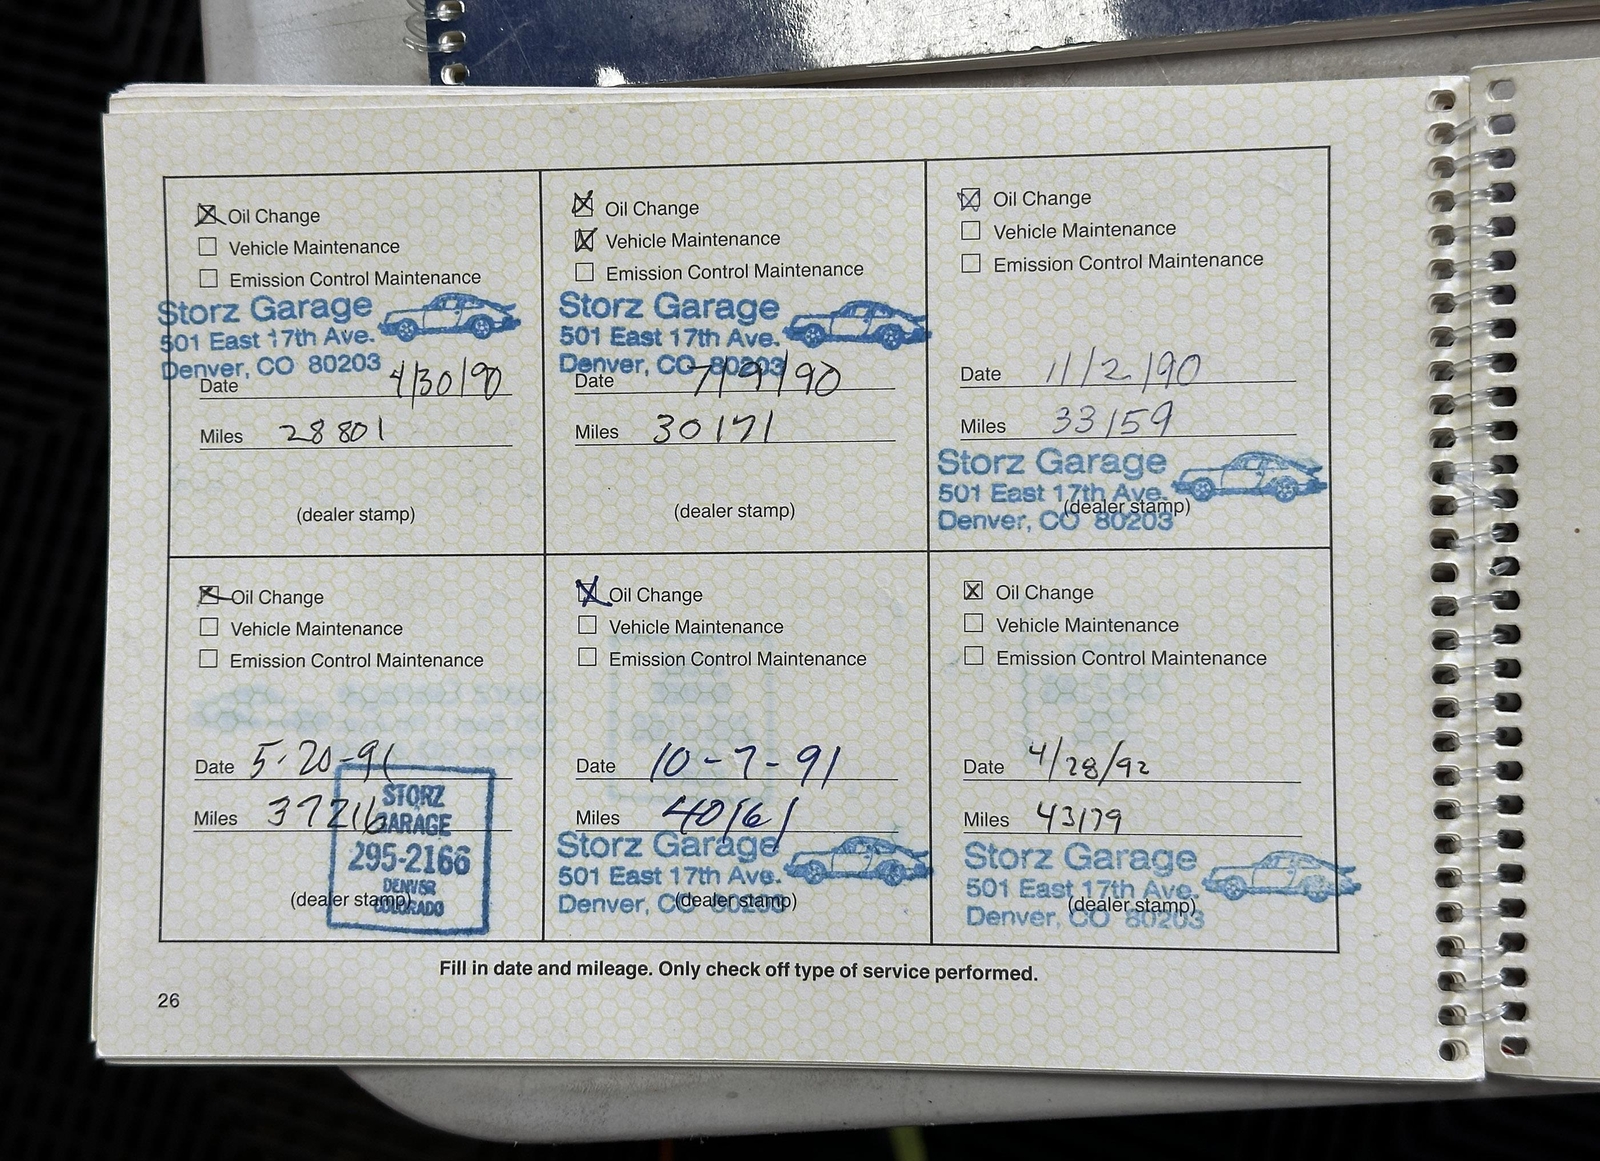 Oil Change
Vehicle Maintenance
Emission Control Maintenance
Storz Garage
501 East 17th Ave.
Denver, CO 80203
Date 4/30/90
Miles 28801
(dealer stamp)
Oil Change
Vehicle Maintenance
Emission Control Maintenance
Storz Garage
501 East 17th Ave.
Denver, CO 80203
Date 7/9/90
Miles 30171
(dealer stamp)
Oil Change
Vehicle Maintenance
Emission Control Maintenance
Date 11/2/90
Miles 33159
Storz Garage
501 East 17th Ave.
(dealer stamp)
Denver, CO 80203
Oil Change
Vehicle Maintenance
Emission Control Maintenance
Date 5-20-91
Miles 37216
STORZ
GARAGE
295-2166
DENVER
COLORADO
(dealer stamp)
Oil Change
Vehicle Maintenance
Emission Control Maintenance
Date 10-7-91
Miles 40161
Storz Garage
501 East 17th Ave.
Denver, CO 80203
(dealer stamp)
Oil Change
Vehicle Maintenance
Emission Control Maintenance
Date 4/28/92
Miles 43179
Storz Garage
501 East 17th Ave.
(dealer stamp)
Denver, CO 80203
Fill in date and mileage. Only check off type of service performed.
26